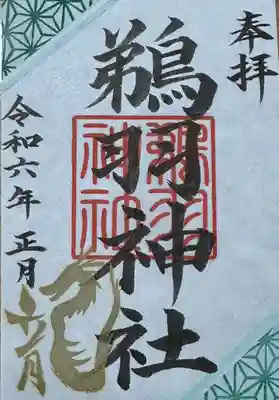 奉拝
鵜羽神社
鵜羽
神社
令和六年 正月